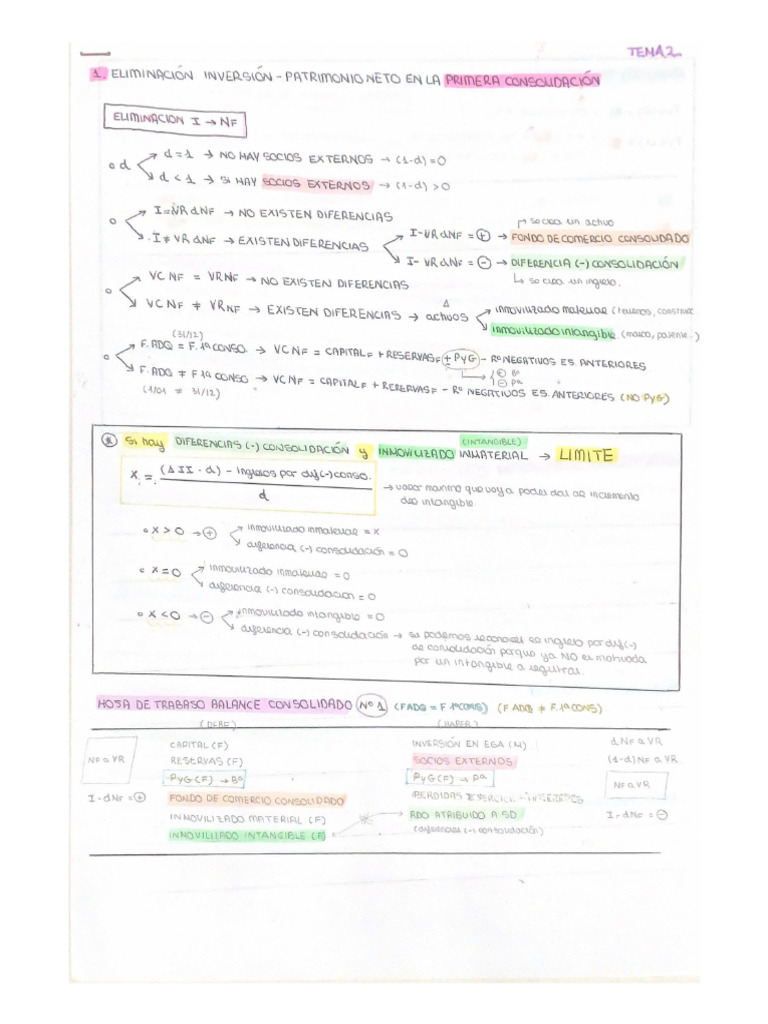 TEMA 2
1. ELIMINACIÓN INVERSIÓN - PATRIMONIO NETO EN LA PRIMERA CONSOLIDACIÓN
ELIMINACION I → NF
d
d = 1 → NO HAY SOCIOS EXTERNOS → (1-d) = 0
d < 1 → SI HAY SOCIOS EXTERNOS → (1-d) > 0
I = VR dNF → NO EXISTEN DIFERENCIAS
I ≠ VR dNF → EXISTEN DIFERENCIAS
↱ se crea un activo
I - VR dNF = ⊕ → FONDO DE COMERCIO CONSOLIDADO
I - VR dNF = ⊖ → DIFERENCIA (-) CONSOLIDACIÓN
↳ se crea un ingreso.
VC NF = VR NF → NO EXISTEN DIFERENCIAS
VC NF ≠ VR NF → EXISTEN DIFERENCIAS → Δ activos
inmovilizado material (terrenos, construcc
inmovilizado intangible (marca, patente..)
(31/12)
F. ADQ = F. 1ª CONSO. → VC NF = CAPITAL F + RESERVAS F + PyG - Rº NEGATIVOS EJ. ANTERIORES
⊕ Bº
⊖ Pª
F. ADQ ≠ F. 1ª CONSO → VC NF = CAPITAL F + RESERVAS F - Rº NEGATIVOS EJ. ANTERIORES (NO PyG)
(1/01 ≠ 31/12)
Si hay DIFERENCIAS (-) CONSOLIDACIÓN y INMOVILIZADO INMATERIAL (INTANGIBLE) → LIMITE
X = (Δ II · d) - Ingresos por dif (-) conso. / d
→ valor maximo que voy a poder dar de incremento
del intangible.
X > 0 → ⊕
inmovilizado inmaterial = X
diferencia (-) consolidación = 0
X = 0
inmovilizado inmaterial = 0
diferencia (-) consolidación = 0
X < 0 → ⊖
inmovilizado intangible = 0
diferencia (-) consolidación → si podemos reconocer el ingreso por dif (-)
de consolidación porque ya NO es motivada
por un intangible a registrar.
HOJA DE TRABAJO BALANCE CONSOLIDADO Nº 1 (F ADQ = F 1ª CONS) (F ADQ ≠ F. 1ª CONS)
(DEBE) (HABER)
CAPITAL (F) INVERSIÓN EN EGA (M) d NF a VR
NF a VR RESERVAS (F) SOCIOS EXTERNOS (1-d) NF a VR
PyG (F) → Bº PyG (F) → Pª NF a VR
I - dNF = ⊕ FONDO DE COMERCIO CONSOLIDADO
INMOVILIZADO MATERIAL (F) RDO ATRIBUIDO A SD I - dNF = ⊖
INMOVILIZADO INTANGIBLE (F) (diferencias (-) consolidación)